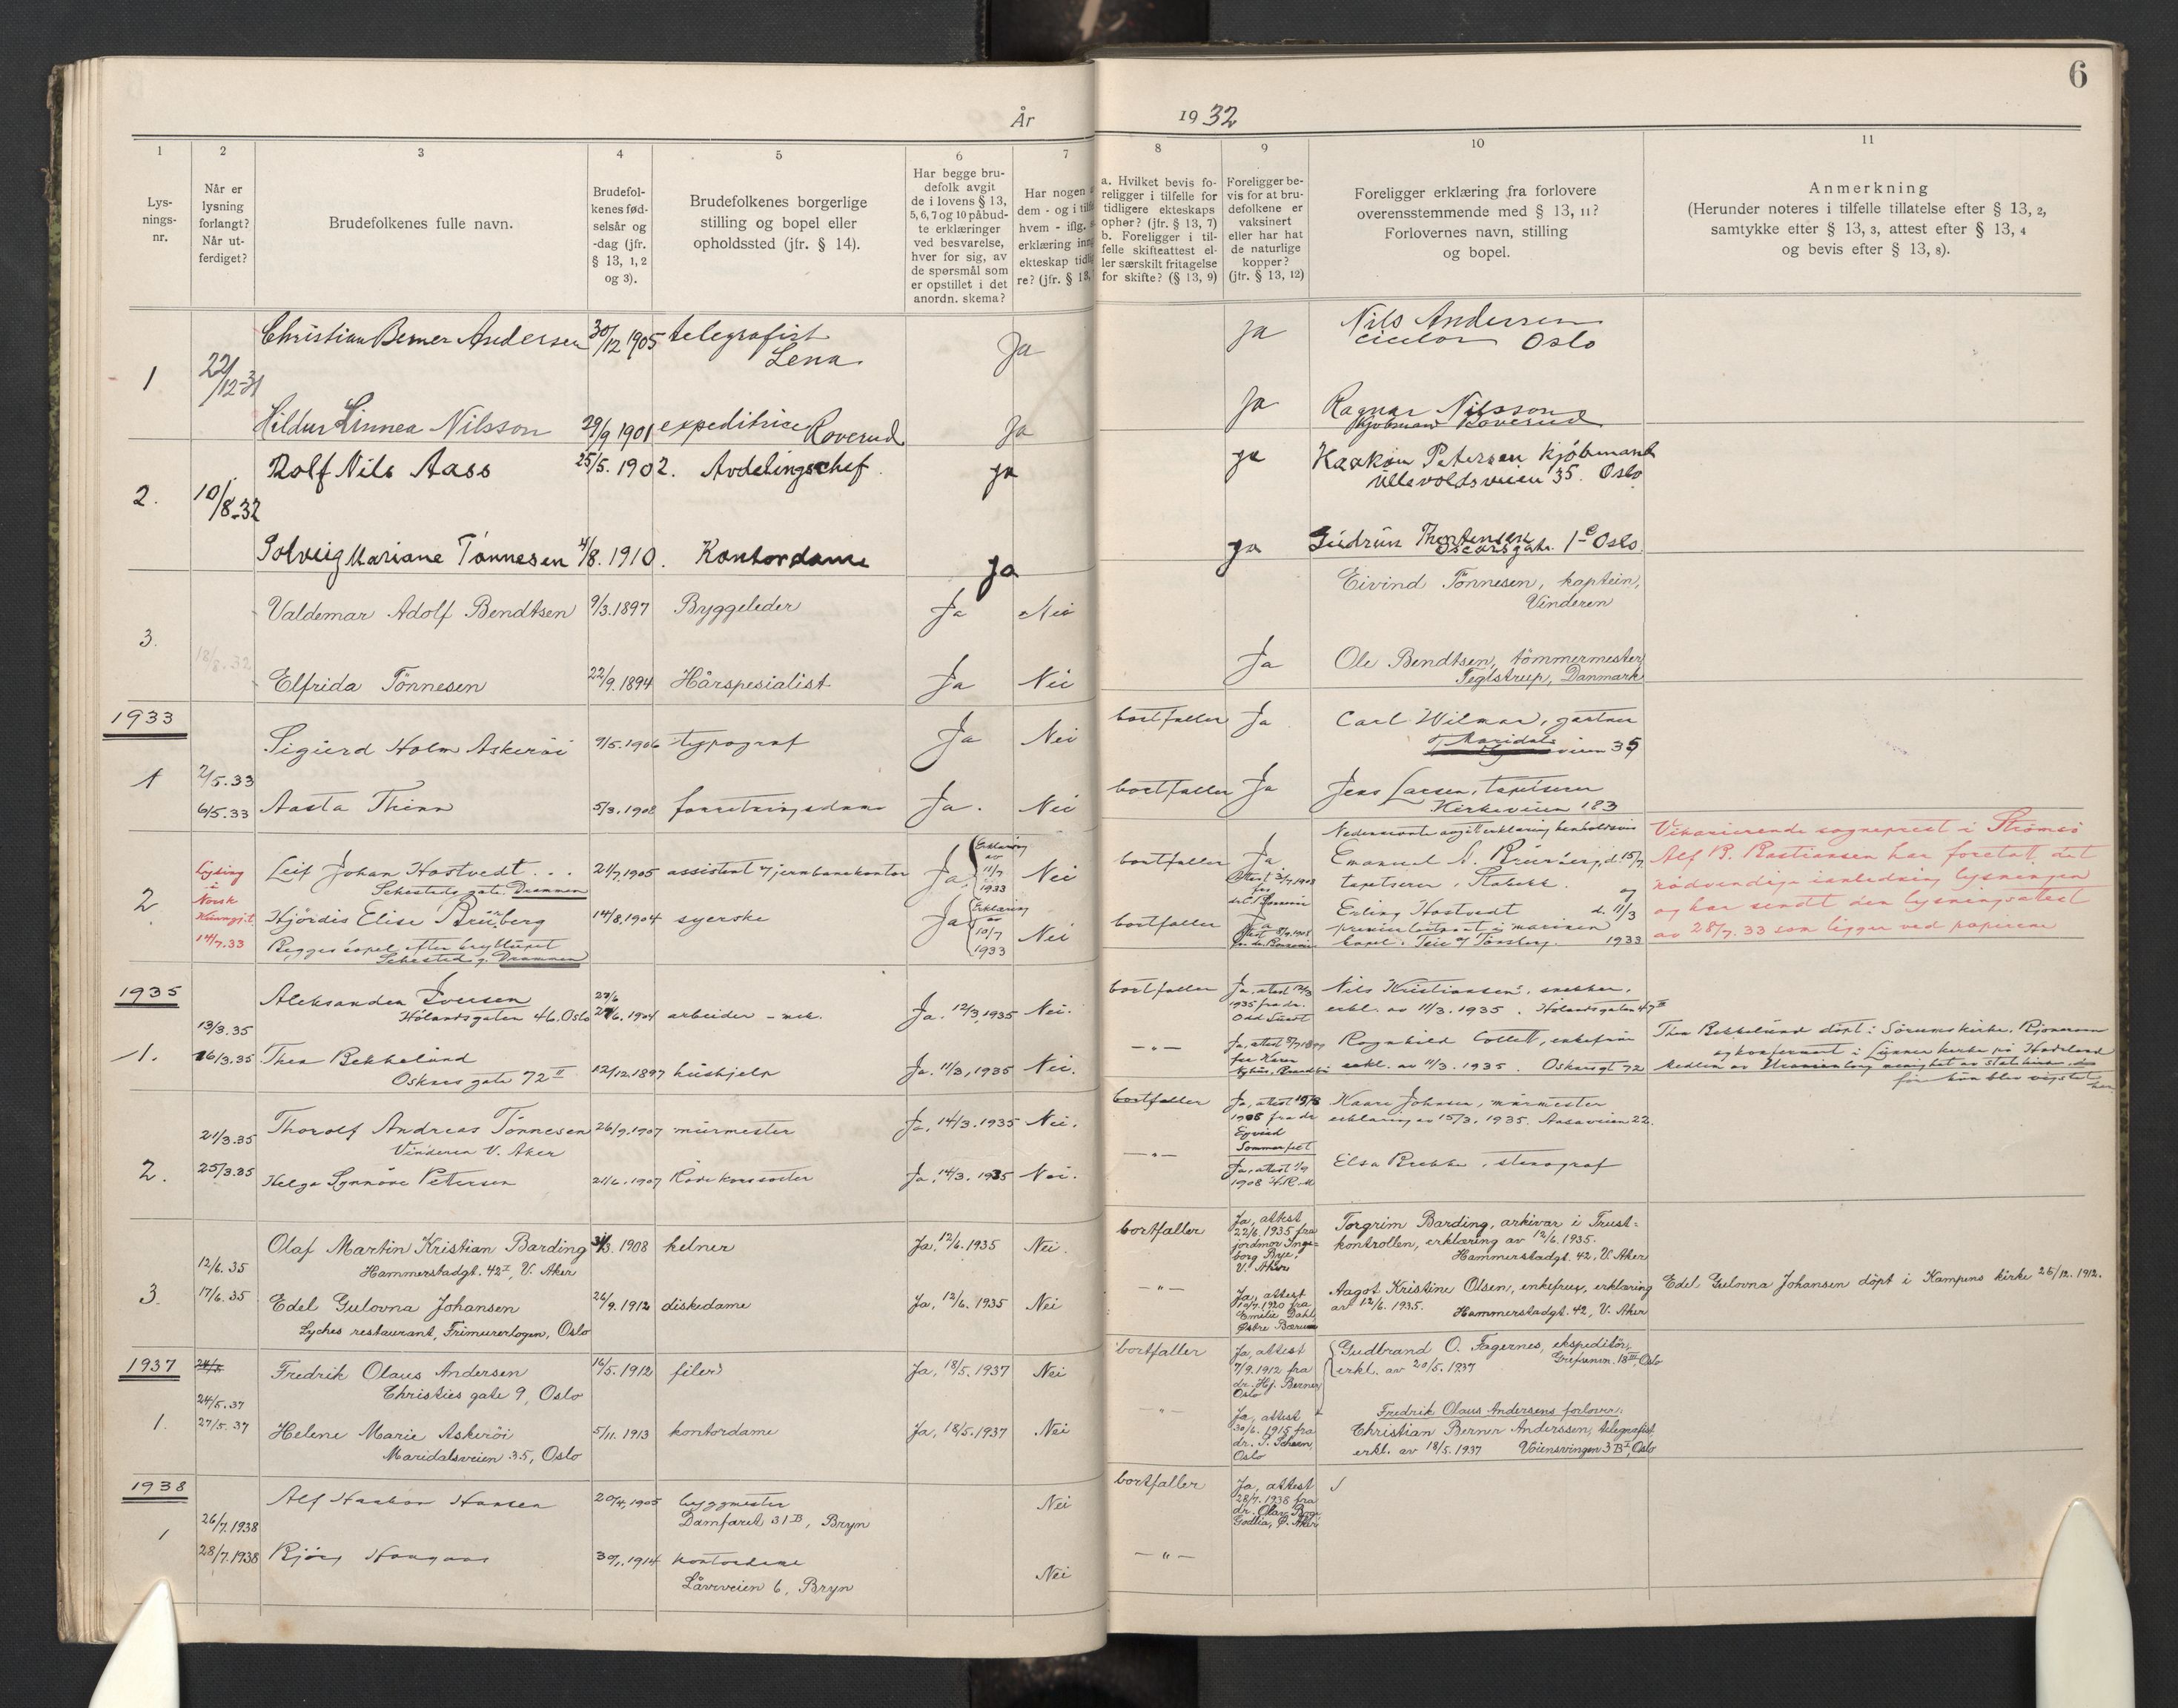 6
År 1932
1 2 3 4 5 6 7 8 9 10 11
Lys-
nings-
nr.
Når er
lysning
forlangt?
Når ut-
ferdiget?
Brudefolkenes fulle navn.
Brudefol-
kenes fød-
selsår og
-dag (jfr.
§ 13, 1, 2
og 3).
Brudefolkenes borgerlige
stilling og bopel eller
opholdssted (jfr. § 14).
Har begge bru-
defolk avgit
de i lovens § 13,
5, 6, 7 og 10 påbud-
te erklæringer
ved besvarelse,
hver for sig, av
de spørsmål som
er opstillet i det
anordn. skema?
Har nogen
dem - og i
hvem - iflg.
erklæring
ekteskap
re? (jfr. § 13,
a. Hvilket bevis fo-
religger i tilfelle for
tidligere ekteskaps
ophør? (jfr. § 13, 7)
b. Foreligger i til-
felle skifteattest el-
ler særskilt fritagelse
for skifte? (§ 13, 9)
Foreligger be-
vis for at bru-
defolkene er
vaksinert
eller har hat
de naturlige
kopper?
(jfr. § 13, 12)
Foreligger erklæring fra forlovere
overensstemmende med § 13, 11?
Forlovernes navn, stilling
og bopel.
Anmerkning
(Herunder noteres i tilfelle tillatelse efter § 13, 2,
samtykke efter § 13, 3, attest efter § 13, 4
og bevis efter § 13, 8).
1
22/12-31
Christian Berner Andersen 30/12 1905 telegrafist
Lena
Ja
ja
Nils Andersen
Oslo
Hildur Linnea Nilsson 29/9 1901 expeditrice Roverud
Ja
ja
Ragnar Nilsson
Kjøbmann Roverud
2.
10/8-32
Rolf Nils Aass 25/5. 1902. Avdelingschef
ja
ja
Haakon Petersen kjøbmand
Ullevoldsveien 35. Oslo
Solveig Mariane Tønnesen 4/8. 1910. Kontordame
ja
ja
Gudrun Thorstensen
Oscarsgate. 1 Oslo
3.
18/8. 32
Valdemar Adolf Bendtsen 9/3. 1897 Byggeleder Ja Nei
Eivind Tönnesen, kaptein,
Vinderen
Elfrida Tönnesen 22/9. 1894 Hårspesialist Ja Nei
Ja
Ole Bendtsen, tömmermester
Teglstrup, Danmark
1933
1
2/5. 33
6/5. 33
Sigurd Holm Askerøi 9/5. 1906 typograf Ja Nei
bortfaller Ja
Carl Wilmar, gartner
Maridalsveien 35
Aasta Thinn 5/3. 1908 forretningsdame Ja. Nei
bortfaller Ja
Jens Larsen, tapetserer
Kirkeveien 183
2
Lysing
i
Norsk
Kunngj.t.
14/7. 33
Leif Johan Hostvedt . . . 21/7. 1905 assistent v/jernbanekontor Ja Erklæring av 11/7 1933 Nei
Sehesteds gate. Drammen
bortfaller Ja
Nedennevnte avgitt erklæring henholdsvis
Emanuel A. Brürberg, d. 15/7
tapetserer, Stabekk. og
Hjördis Elise Brürberg 14/8. 1904 syerske Ja Erklæring av 10/7 1933 Nei
Begges bopel efter bryllupet
Sehesteds g. Drammen
bortfaller Ja
Erling Hostvedt d. 11/3
premierløitnant i marinen
bopel: Teie v/ Tönsberg. 1933
Vikarierende sogneprest i Strømsö
Alf B. Bastiansen har foretatt det
nödvendige i anledning lysningen
og har sendt den lysningsattest
av 28/7. 33 som ligger ved papirene
1935
1.
13/3. 35
16/3. 35
Aleksander Iversen
Hölandsgaten 4b. Oslo 27/6. 1904 arbeider - mek. Ja. 12/3, 1935 Nei.
bortfaller Ja, attest 12/3
1935 fra dr.
Odd Sundt
Nils Kristiansen, snekker,
erkl. av 11/3. 1935. Hölandsgaten 4
Thea Bekkelund
Oskars gate 72 II 12/12. 1897 hushjelp Ja. 11/3, 1935 Nei.
— „ —
Ragnhild Collett, enkefrue
erkl. av 11/3. 1935. Oskarsgt 72
Thea Bekkelund döpt i Sörums kirke, Romerike
og konfirmert i Lunner kirke på Hadeland
2.
21/3. 35
25/3. 35
Thorolf Andreas Tönnesen 26/9. 1907 murmester Ja, 14/3. 1935 Nei.
Vinderen V. Aker
bortfaller Ja, attest
1908 fra dr
Eyvind
Sommerfelt
Kaare Johnsen, murmester
erklæring av 15/3. 1935. Aasaveien 22.
Helga Synnöve Petersen 21/6. 1907 Rödekorssöster Ja, 14/3. 1935 Nei.
— „ —
Ja, attest
1908
Elsa Brekke, stenograf
3.
12/6. 35
17/6. 35
Olaf Martin Kristian Barding 31/3. 1908 kelner Ja, 12/6. 1935 Nei.
Hammerstadgt. 42 I, V. Aker
bortfaller Ja, attest
22/6. 1935 fra
jordmor Inge-
borg Bye.
V. Aker
Torgrim Barding, arkivar i Trust-
kontrollen, erklæring av 12/6. 1935.
Hammerstadgt. 42, V. Aker
Edel Gulovna Johansen 26/9. 1912 diskedame Ja, 12/6. 1935 Nei
Lyches restaurant, Frimurerlogen, Oslo
— „ —
Ja, attest
10/7. 1920 fra
Emelie Dahl,
Østre Bærum
Aagot Kristine Olsen, enkefrue, erklæring
av 12/6. 1935. Hammerstadgt. 42, V. Aker
Edel Gulovna Johansen döpt i Kampens kirke 26/12. 1912.
1937
1.
24/5. 37
27/5. 37
Fredrik Olaus Andersen 16/5. 1912 filer Ja, 18/5. 1937 Nei
Christies gate 9, Oslo
bortfaller Ja, attest
7/9. 1912 fra
dr. Hj. Berner,
Oslo
Gudbrand O. Fagernes, ekspeditör,
erkl. av 20/5. 1937 Grefsenvn. 18 III Oslo
Helene Marie Askeröi 5/11. 1913 kontordame Ja, 18/5. 1937 Nei
Maridalsveien 35, Oslo
— „ —
Ja, attest
30/6. 1915 fra
dr. S. Scheen,
Oslo
Fredrik Olaus Andersens forlover:
Christian Berner Anderssen, telegrafist,
erkl. av 18/5. 1937 Voiensvingen 3 B I, Oslo
1938
1
26/7. 1938
28/7. 1938
Alf Haakon Hansen 20/4, 1905 byggmester Nei
Damfaret 31 B, Bryn
bortfaller Ja, attest
28/7. 1938 fra
dr. Olav
Godlia, Ø. Aker
Bjørg Haugaas 30/1. 1914 kontordame Nei
Låvrveien 6, Bryn
— „ —